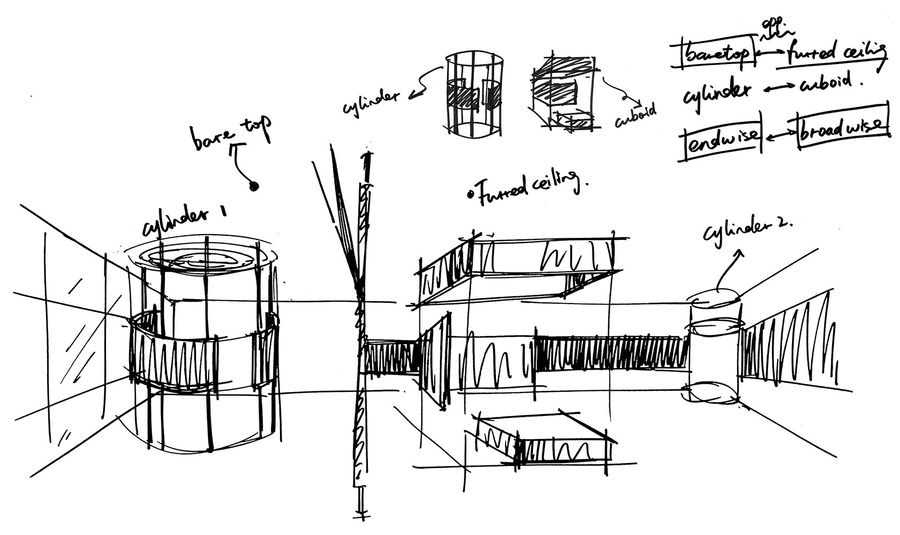 opp.
baretop ↔ furred ceiling
cylinder ↔ cuboid.
endwise ↔ broadwise
cylinder
cuboid
bare top
Furred ceiling.
cylinder 1
cylinder 2.